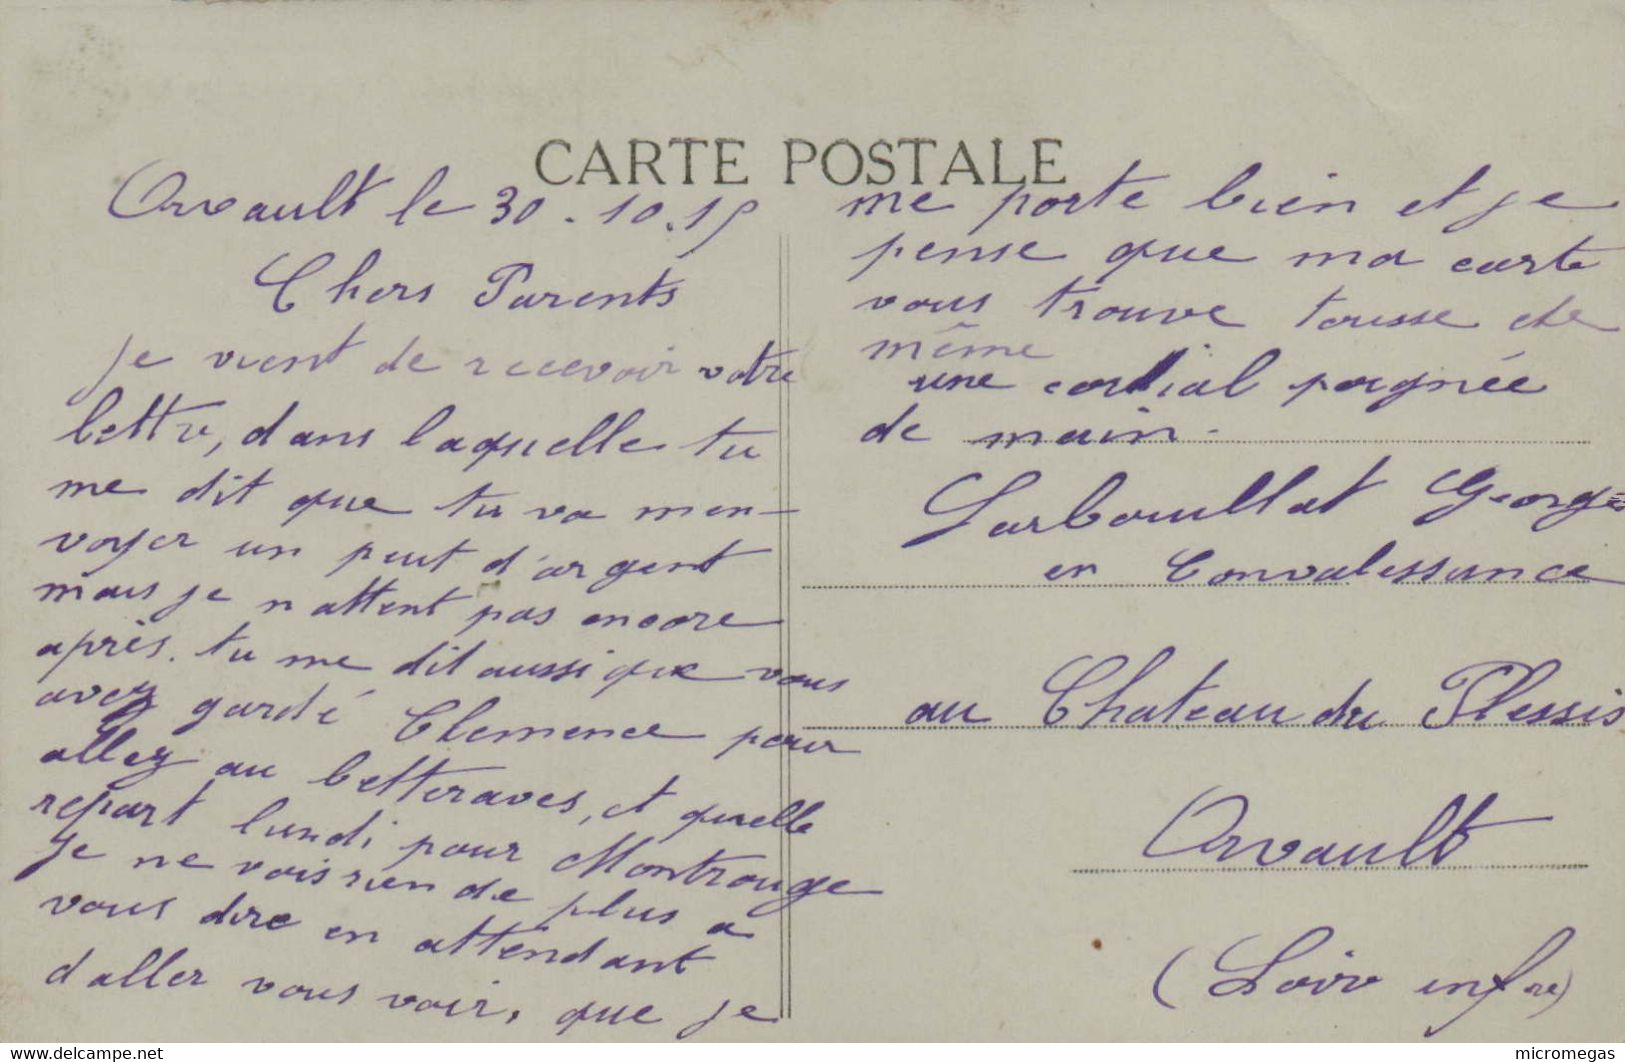 CARTE POSTALE
Orvault le 30.10.15
Chers Parents
Je vient de recevoir votre
lettre, dans laquelle tu
me dit que tu va men-
voyer un peut d'argent
mais je n attent pas encore
après. tu me dit aussi que vous
avez gardé Clemence pour
allez au betteraves, et quelle
repart lundi pour Montrouge
Je ne vois rien de plus a
vous dire en attendant
d aller vous voir, que je
me porte bien et je
pense que ma carte
vous trouve tousse de
même
une cordial poignée
de main.
Larbouillat Georges
en Convalessance
au Chateau du Plessis
Orvault
(Loire infre)
www.delcampe.net
micromegas